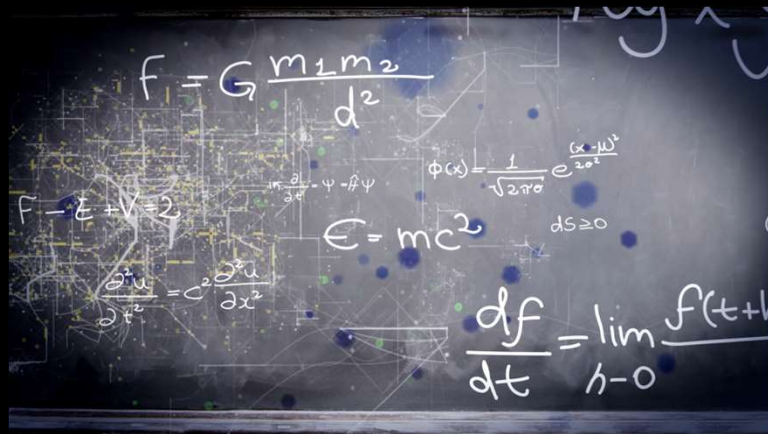 log xy
F = G m1m2/d²
ϕ(x) = 1/√2πσ e^(x-μ)²/2σ²
∂/∂t Ψ = ĤΨ
F - E + V = 2
E = mc²
dS ≥ 0
∂²u/∂t² = c² ∂²u/∂x²
df/dt = lim h-0 f(t+h